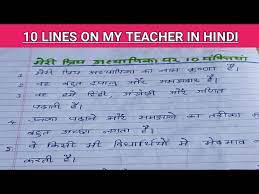 10 LINES ON MY TEACHER IN HINDI
मेरी प्रिय अध्यापिका पर 10 पंक्तियाँ
1 मेरी प्रिय अध्यापिका का नाम कृष्णा है।
2 वह बहुत दयालु और समझदार है।
3 वह हमें हिंदी अंग्रेजी और गणित
पढ़ाती हैं।
4 उनका पढ़ाने और समझाने का तरीका
बहुत अच्छा लगता है।
5 वे किसी भी विद्यार्थियों में भेदभाव न
करती है।